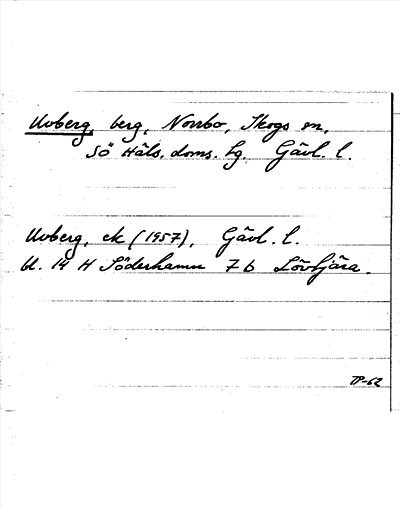 Uvberg, berg, Norrbo, Skogs sn,
Sö Häls. doms. Lg. Gävl. l.
Uvberg, ek (1957), Gävl. l.
bl. 14 H Söderhamn 7 b Lövtjära.
TP-62